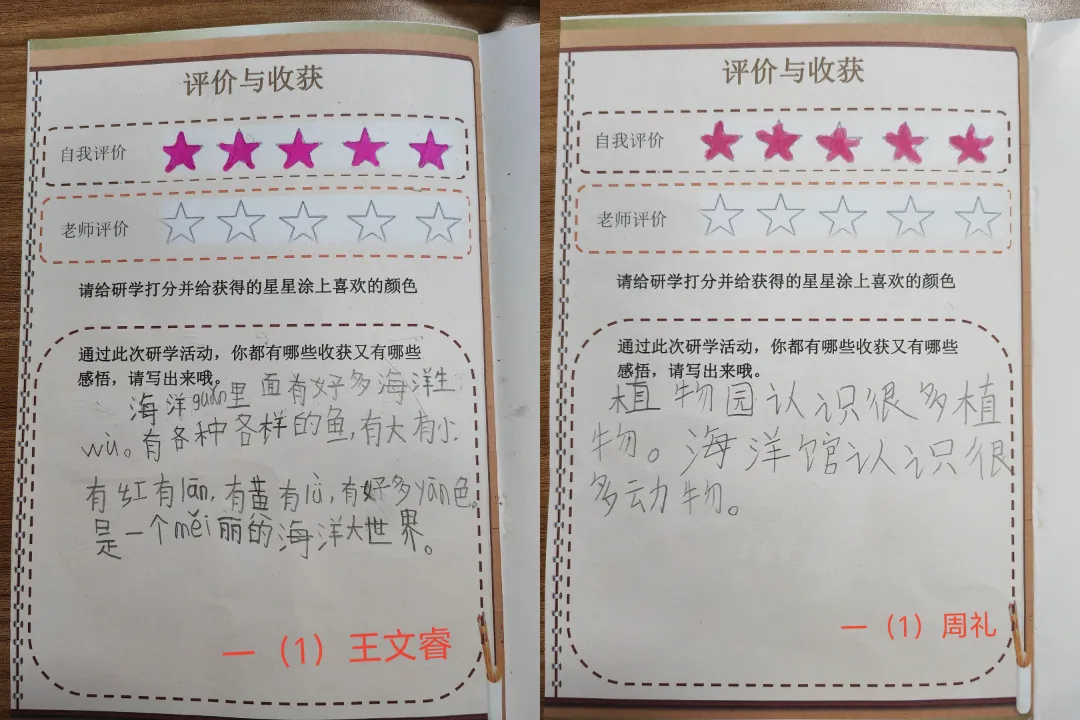 评价与收获
自我评价
老师评价
请给研学打分并给获得的星星涂上喜欢的颜色
通过此次研学活动，你都有哪些收获又有哪些
感悟，请写出来哦。
海洋guǎn里面有好多海洋生
wù。有各种各样的鱼,有大有小.
有红有lān,有黄有lǜ,有好多yán色。
是一个měi丽的海洋大世界。
一（1）王文睿
评价与收获
自我评价
老师评价
请给研学打分并给获得的星星涂上喜欢的颜色
通过此次研学活动，你都有哪些收获又有哪些
感悟，请写出来哦。
植物园认识很多植
物。海洋馆认识很
多动物。
一（1）周礼